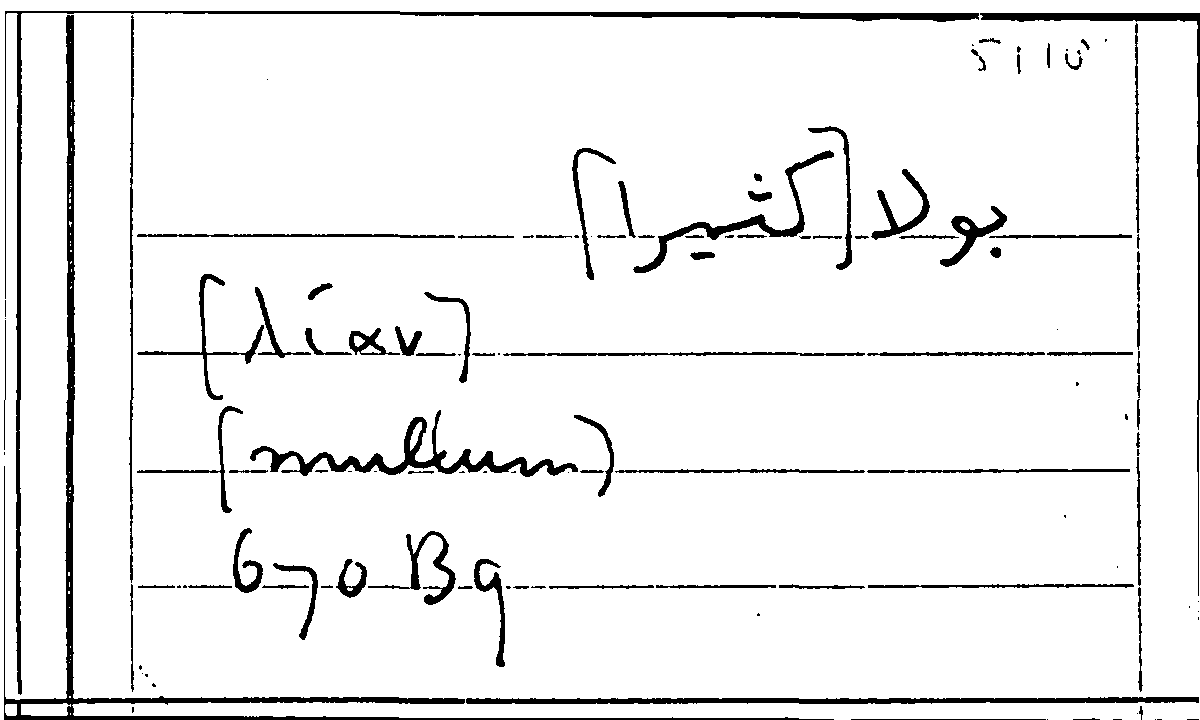 بولا [كثيرا]
[λίαν]
[multum)
670 B9